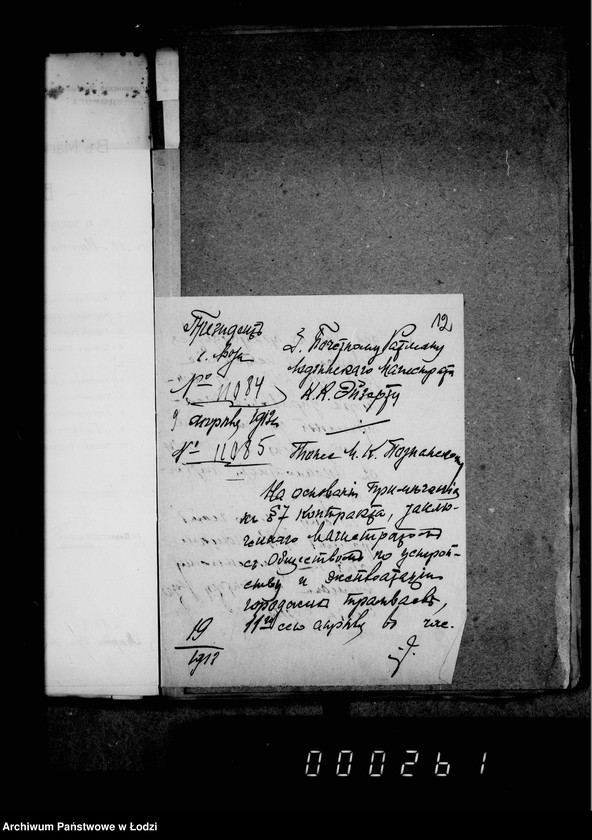 12
Президентъ
г. Лодзи
№ 11084
9 апрѣля 1912 г.
№ 11085
Г. Почетному Ратману
Лодзинскаго Магистрата
К. К. Эйзерту
Тоже М. К. Познанскому
На основанiи примѣчанiя
къ § 7 контракта, заклю-
ченнаго Магистратомъ
съ Обществомъ по устрой-
ству и эксплоатацiи
городскихъ трамваевъ,
11го сего апрѣля въ час.
19
1912
000261
Archiwum Państwowe w Łodzi